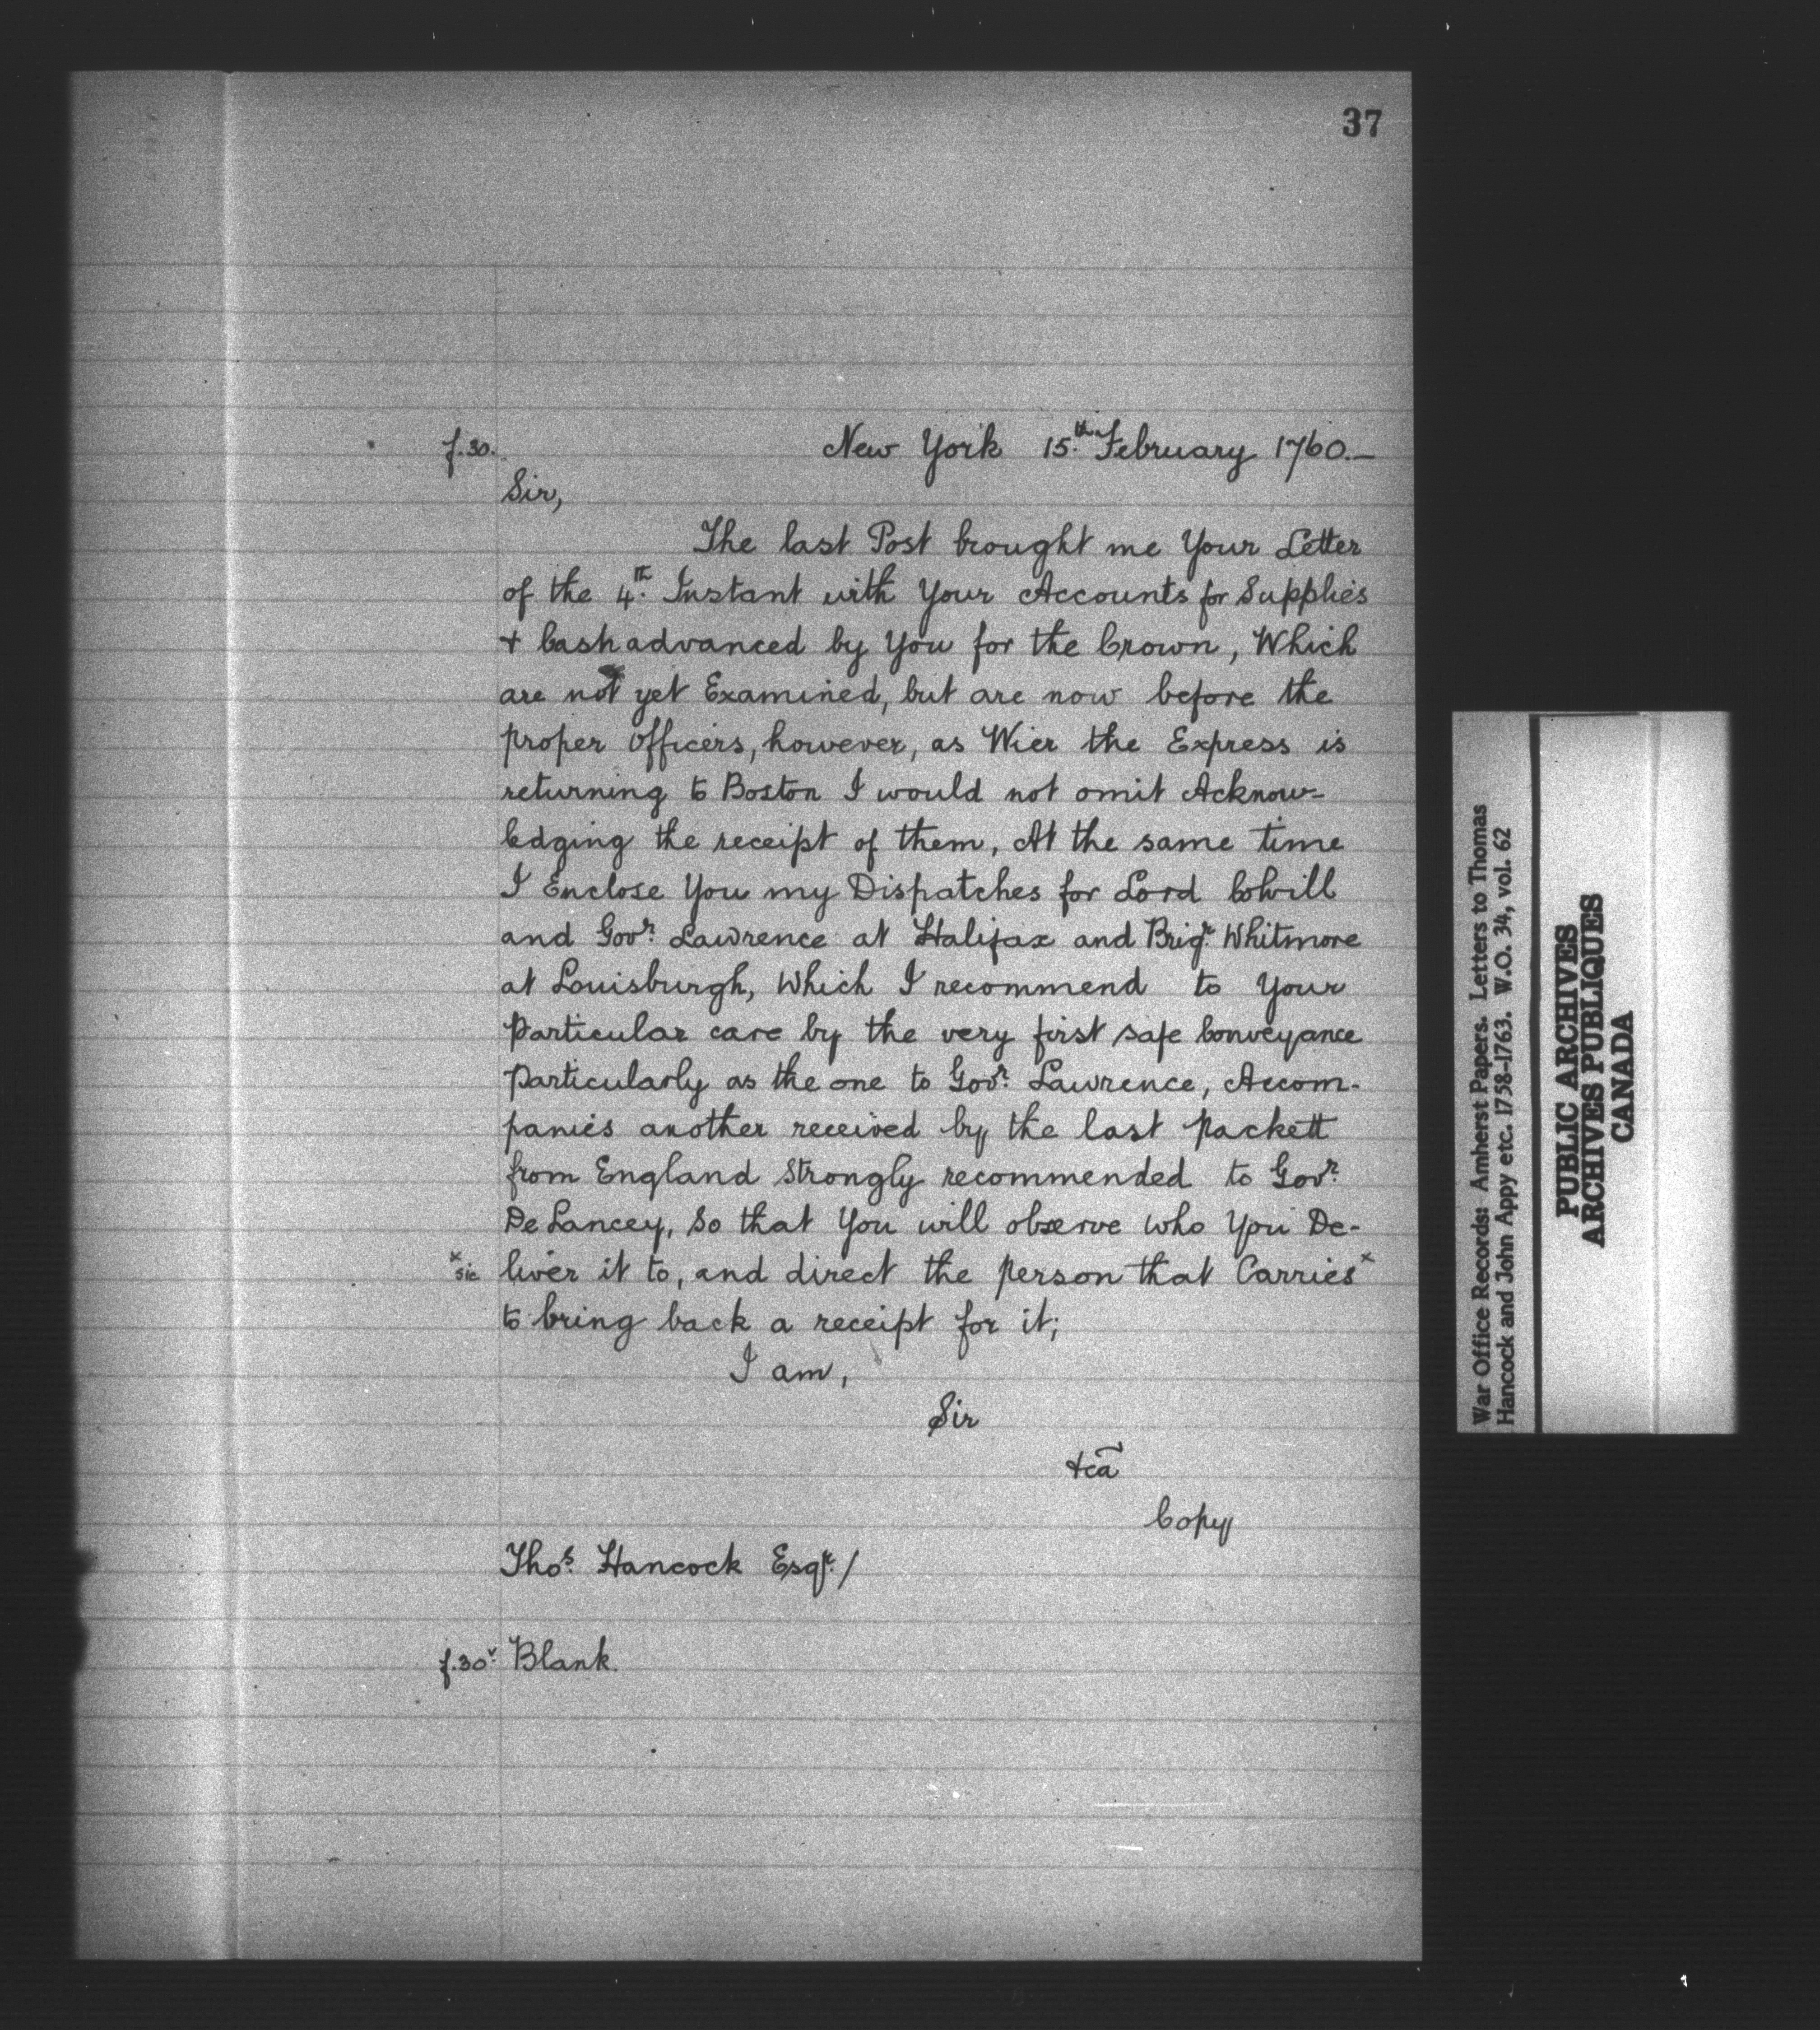 37
f.30. New York 15th. February 1760.—
Sir,
The last Post brought me Your Letter
of the 4th. Instant with Your Accounts for Supplies
+ Cash advanced by You for the Crown, Which
are not yet Examined, but are now before the
proper Officers, however, as Wier the Express is
returning to Boston I would not omit Acknow-
ledging the receipt of them, At the same time
I Enclose You my Dispatches for Lord Colvill
and Govr. Lawrence at Halifax and Brigr. Whitmore
at Louisburgh, Which I recommend to Your
Particular care by the very first safe Conveyance
Particularly as the one to Govr. Lawrence, Accom-
panies another received by the last Packett
from England Strongly recommended to Govr.
De Lancey, So that You will observe who You De-
x sic liver it to, and direct the Person that Carries x
to bring back a receipt for it;
I am,
Sir
+ca
Copy
Thos. Hancock Esqr. /
f.30v. Blank.
War Office Records: Amherst Papers. Letters to Thomas
Hancock and John Appy etc. 1758-1763. W.O. 34, vol. 62
PUBLIC ARCHIVES
ARCHIVES PUBLIQUES
CANADA